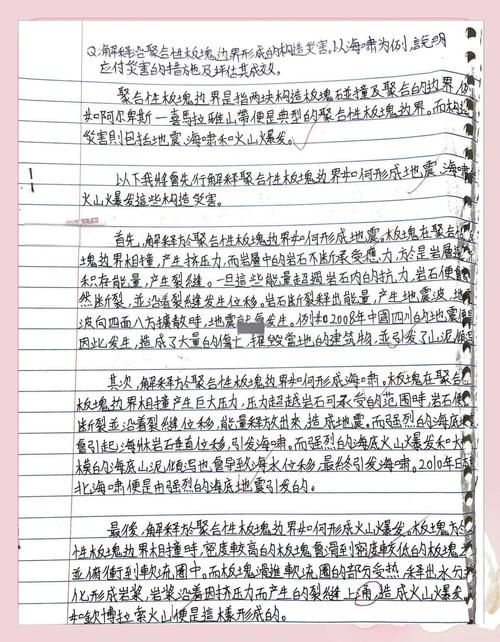 Q:解釋沿聚合性板塊边界形成的构造災害。以海嘯为例,說明
应付災害的措施及坪估其成效。
聚合性板塊边界是指两块构造板塊碰撞及聚合的边界,例
如阿尔卑斯一喜馬拉雅山帶便是典型的聚合性板塊边界。而构造
災害則包括地震、海嘯和火山爆发。
以下我將會先行解釋聚合性板塊边界如何形成地震、海嘯
火山爆发這些构造災害。
首先,解釋於聚合性板塊边界如何形成地震。板塊在聚合
塊边界相撞,产生挤压力,而岩層中的岩石不断承受應力,於是岩層
积存能量,产生裂縫。一旦這些能量超过岩石内的抗力,岩石便會
然断裂,並沿着裂縫发生位移。岩石断裂釋出能量,产生地震波,地
波向四面八方擴散時,地震就會发生。例如2008年中國四川的地震便
因此发生,造成了大量的傷亡,摧毁當地的建筑物,並引发了山泥傾
其次,解釋於聚合性板塊边界如何形成海嘯。板塊在聚合
板塊边界相撞产生巨大压力,压力超越岩石可承受的范围時,岩石便
断裂並沿着裂縫位移,能量釋放出來,造成地震。而强烈的海底地
會引起海牀岩石垂直位移,引发海嘯。而强烈的海底火山爆发和大
模的海底山泥傾瀉也會导致海水位移,最終引发海嘯。2010年日
北海嘯便是由强烈的海底地震引发的。
最後,解釋於聚合性板塊边界如何形成火山爆发。板塊於
性板塊边界相撞時,密度較高的板塊會滑到密度較低的板塊
並俯衝到軟流圈中。而板塊滑進軟流圈的部分受热,釋出水分
化形成岩浆,岩浆沿着因挤压力而产生的裂縫上涌,造成火山爆
如欽博拉索火山便是這樣形成的。